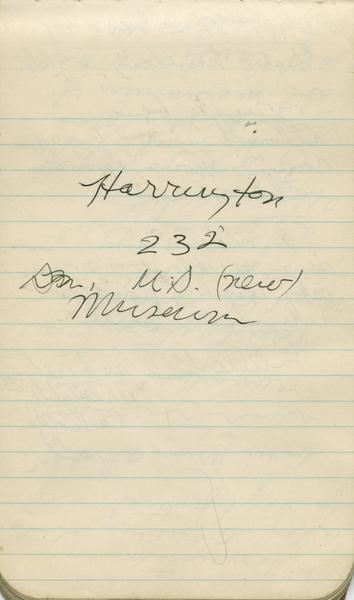 Harrington
232
Rm, U.S. (new)
Museum